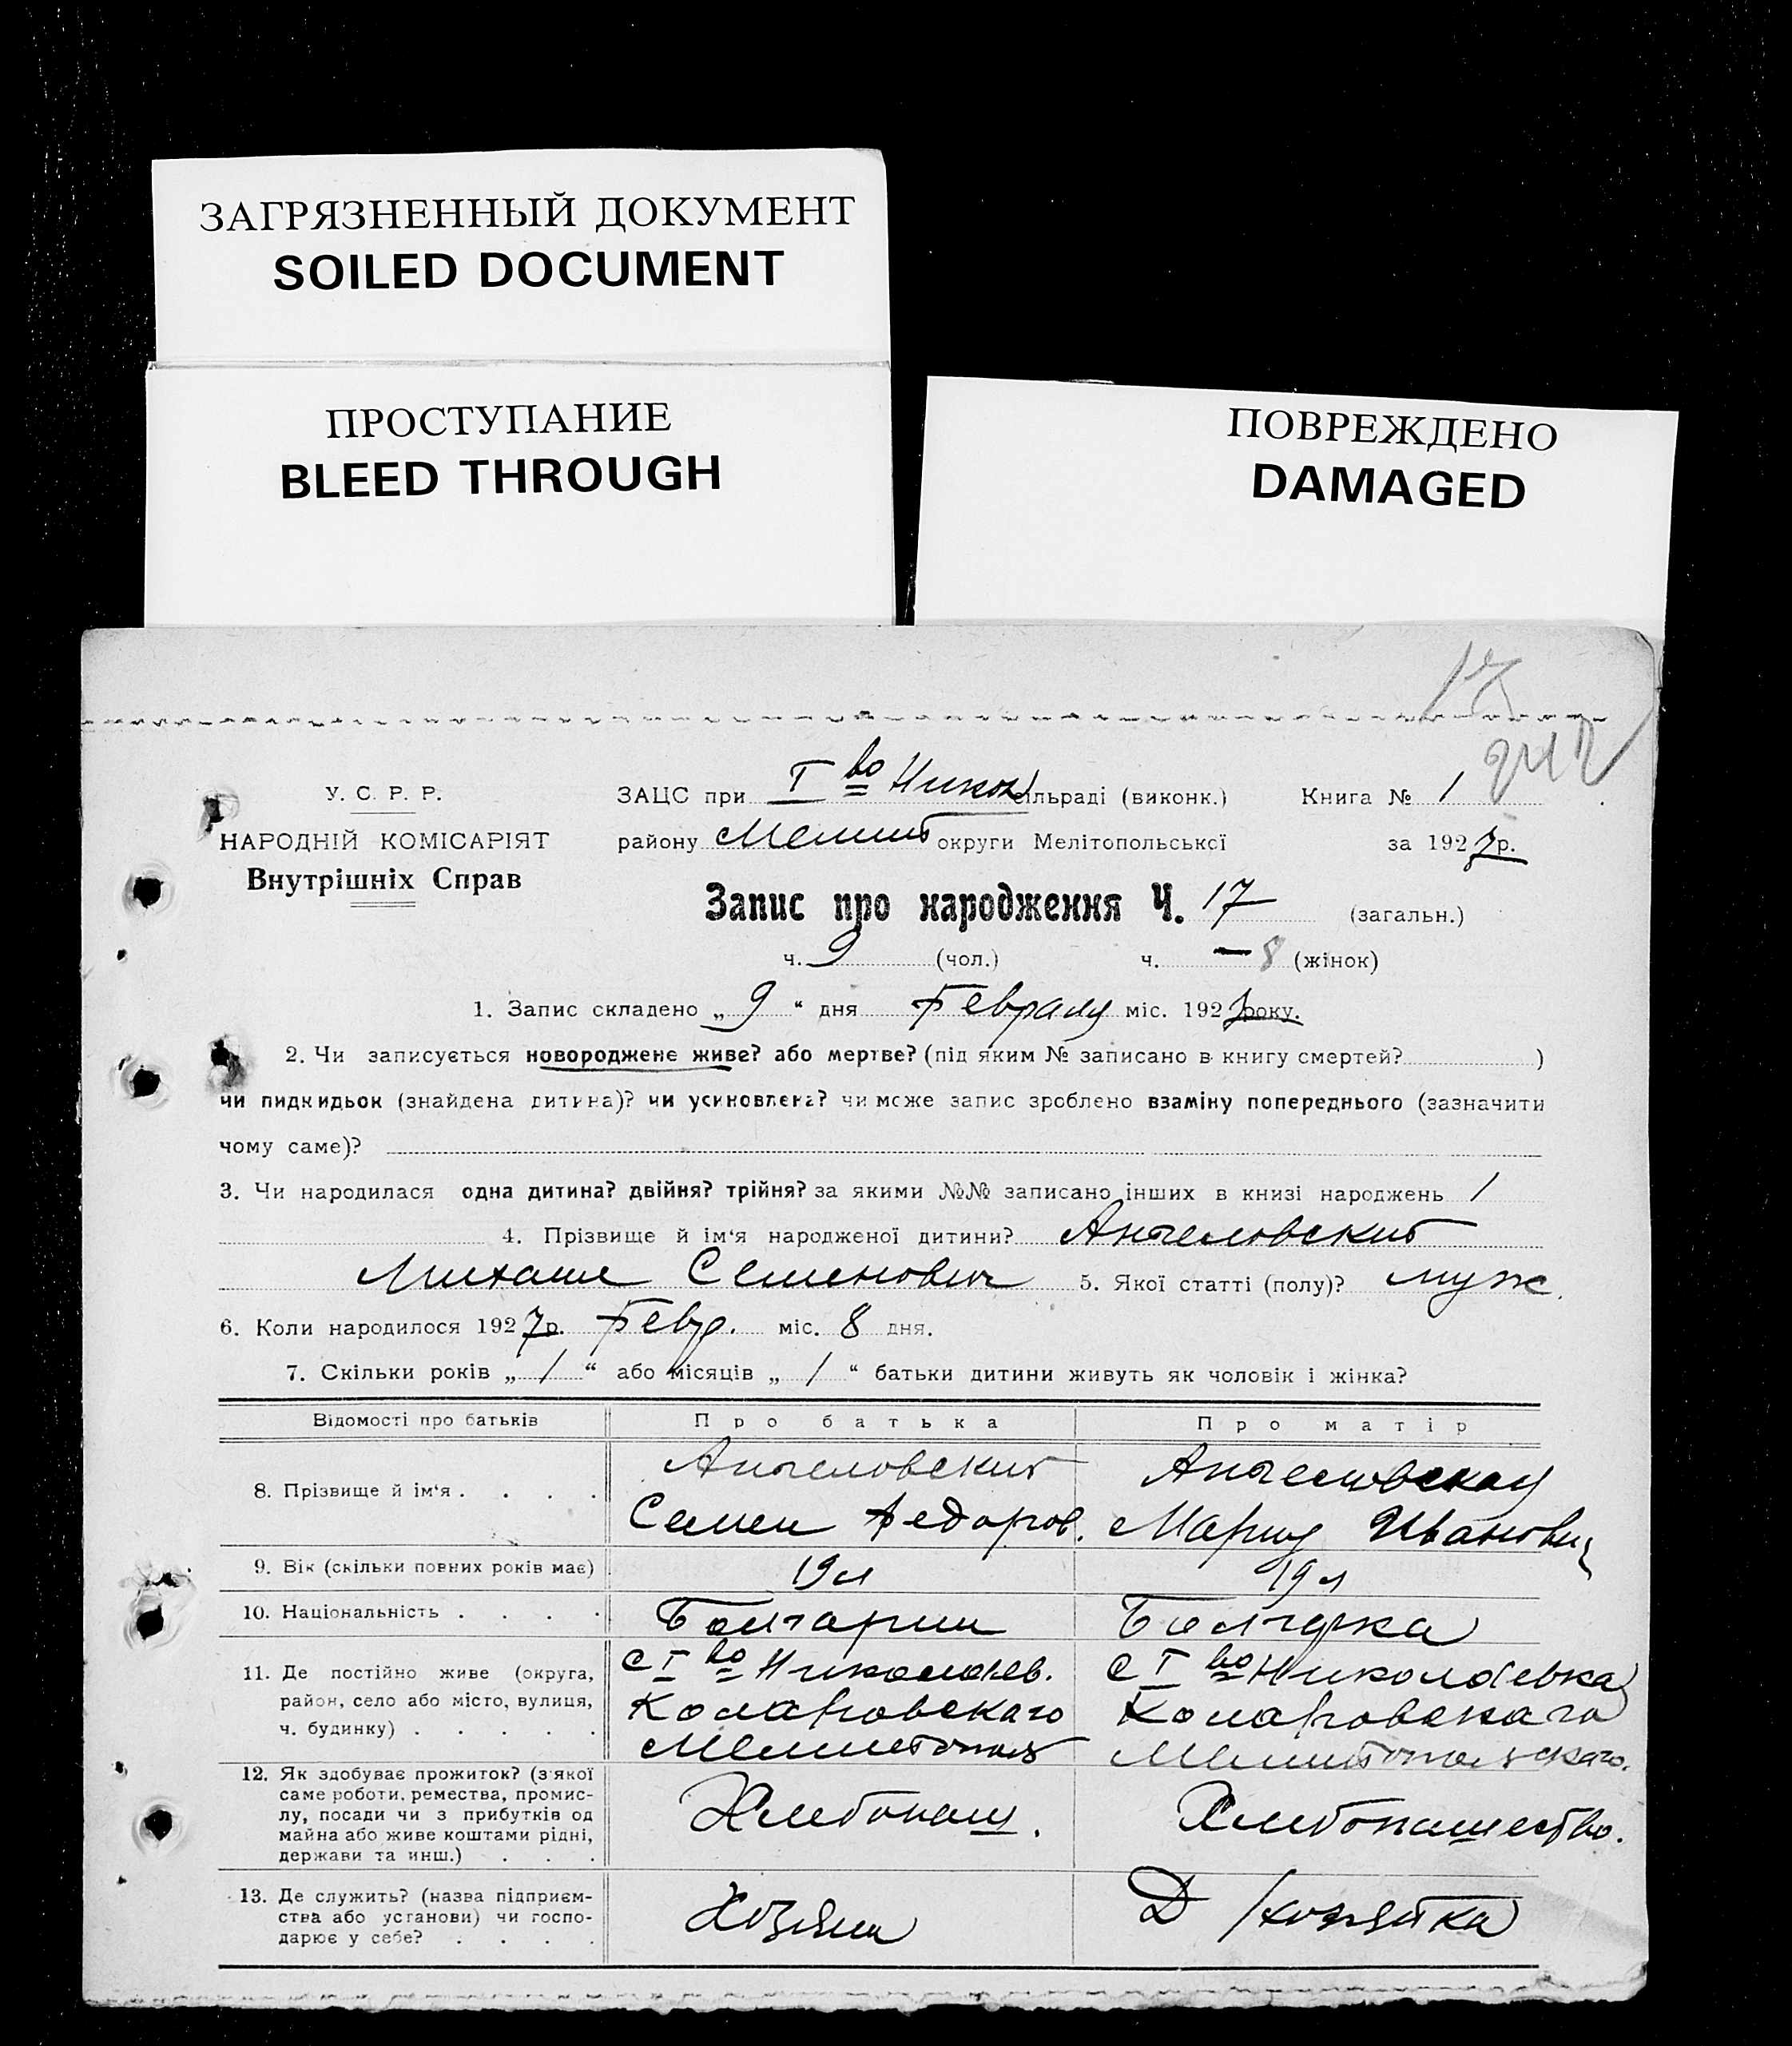 ЗАГРЯЗНЕННЫЙ ДОКУМЕНТ
SOILED DOCUMENT
ПРОСТУПАНИЕ
BLEED THROUGH
ПОВРЕЖДЕНО
DAMAGED
17
У. С. Р. Р.
НАРОДНІЙ КОМІСАРІЯТ
Внутрішніх Справ
ЗАЦС при I во Никол сільраді (виконк.) Книга № 1
району Мелит округи Мелітопольської за 1927 р.
Запис про народження Ч. 17 (загальн.)
ч. 9 (чол.) ч. — 8 (жінок)
1. Запис складено „ 9 “ дня Февраля міс. 1927 року.
2. Чи записується новороджене живе? або мертве? (під яким № записано в книгу смертей? )
чи пидкидьок (знайдена дитина)? чи усиновлена? чи може запис зроблено взаміну попереднього (зазначити
чому саме)?
3. Чи народилася одна дитина? двійня? трійня? за якими №№ записано інших в книзі народжень 1
4. Прізвище й ім'я народженої дитини? Ангеловский
Михаил Семенович 5. Якої статті (полу)? муж.
6. Коли народилося 1927 р. Февр. міс. 8 дня.
7. Скільки років „ / “ або місяців „ / “ батьки дитини живуть як чоловік і жінка?
Відомості про батьків Про батька Про матір
8. Прізвище й ім'я . . . .
Ангеловский
Семен Федоров.
Ангеловская
Мария Иванович
9. Вік (скільки повних років має) 19 л 19 л
10. Національність . . . . Болгарин Болгарка
11. Де постійно живе (округа,
район, село або місто, вулиця,
ч. будинку) . . . . .
с I во Николаев.
Коларовского
Мелитопол
с I во Николаевка
Коларовского
Мелитопольского.
12. Як здобуває прожиток? (з'якої
саме роботи, ремества, промис-
лу, посади чи з прибутків од
майна або живе коштами рідні,
держави та инш.) . . .
Хлебопаш.
Хлебопашество.
13. Де служить? (назва підприєм-
ства або установи) чи госпо-
дарює у себе? . . . .
Хозяин
Д/хозяйка